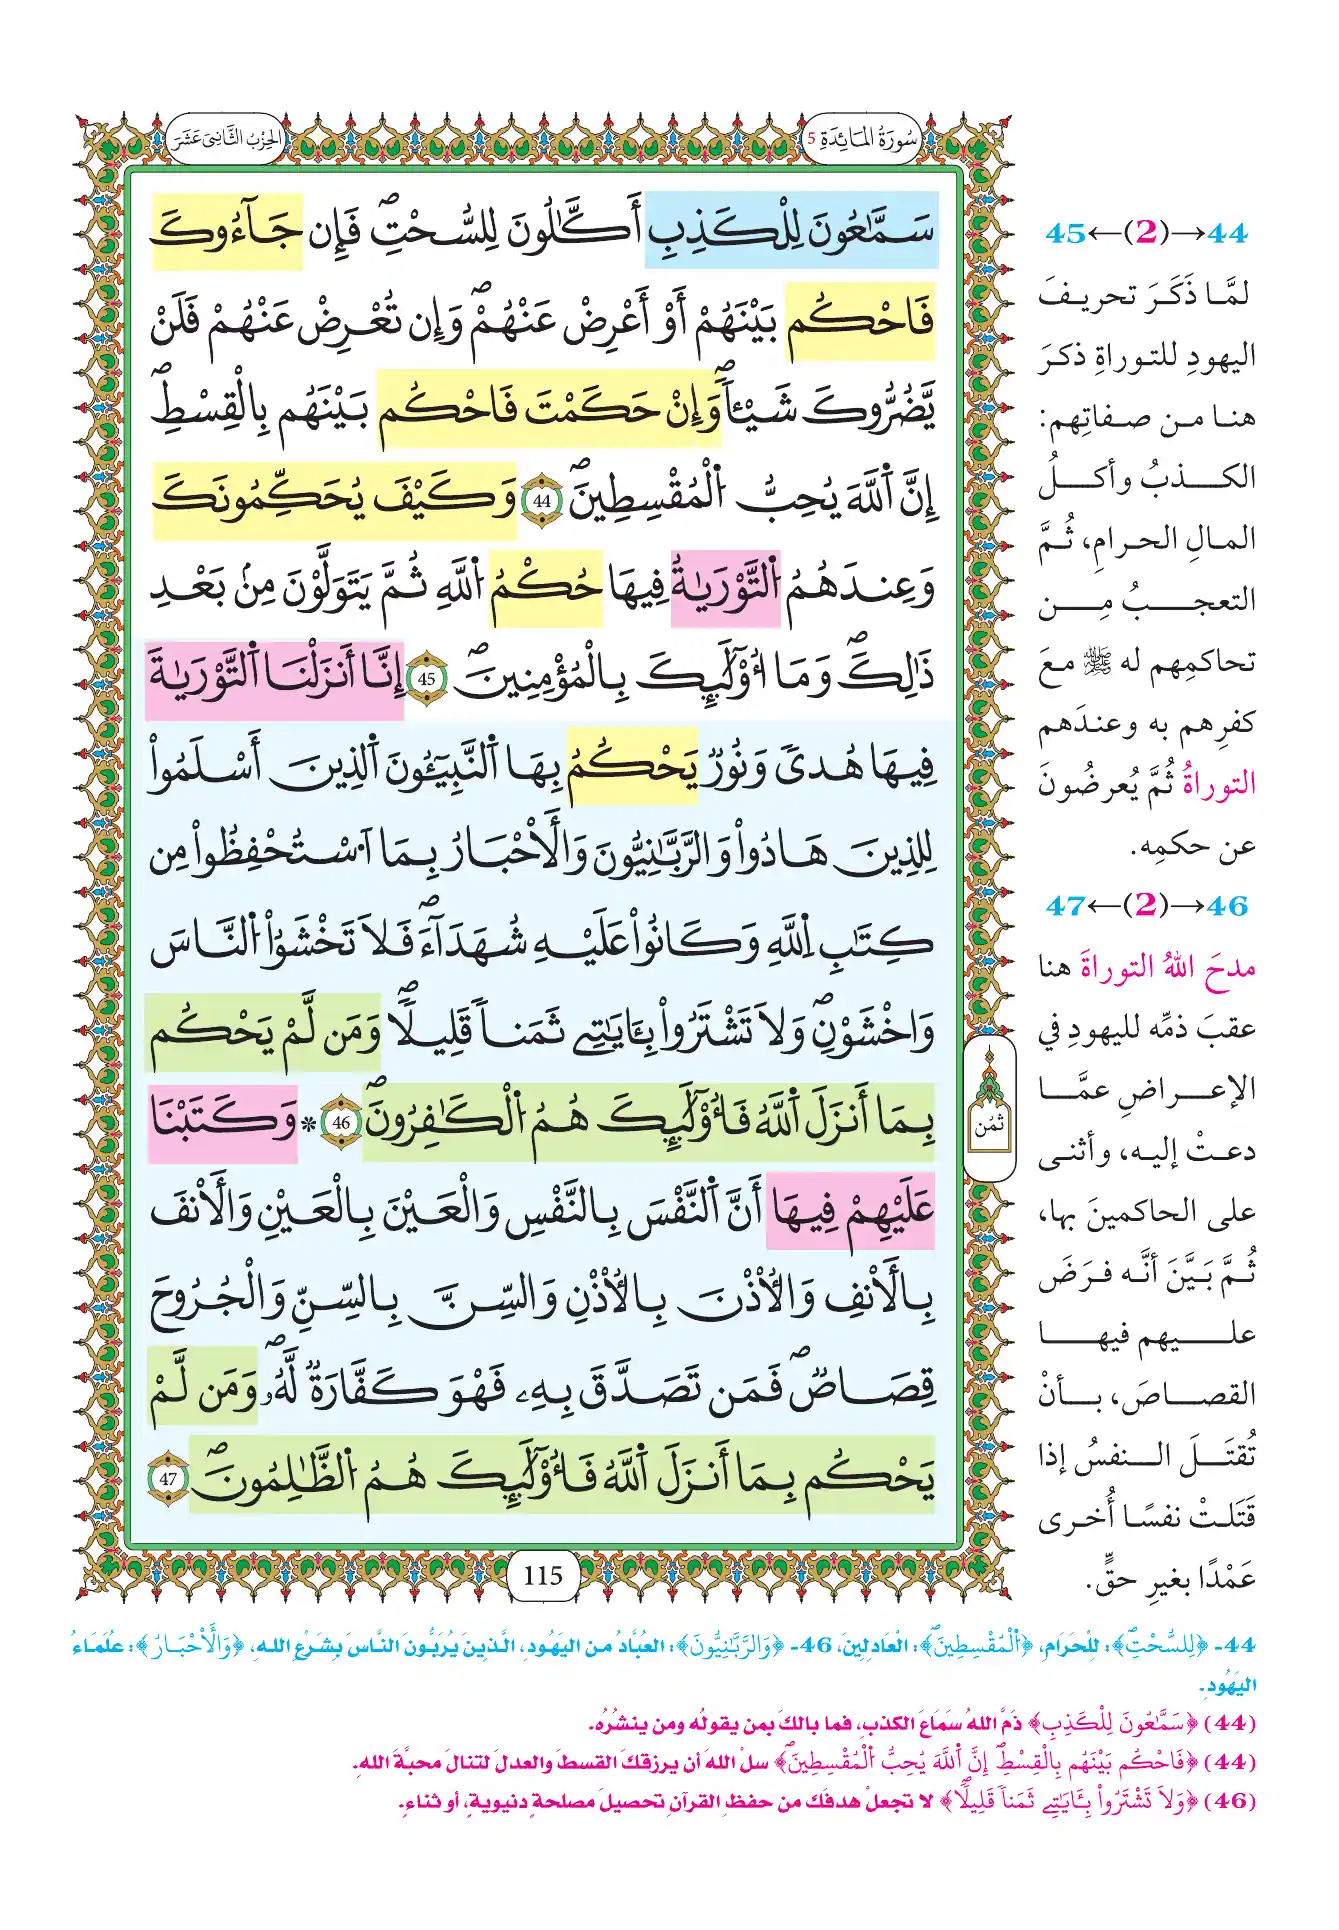 سُورَةُ المَائِدَةِ 5
الحِزْبُ الثَّانِيَ عَشَرَ
سَمَّٰعُونَ لِلْكَذِبِ أَكَّٰلُونَ لِلسُّحْتِۖ فَإِن جَآءُوكَ
فَاحْكُم بَيْنَهُمْ أَوْ أَعْرِضْ عَنْهُمْۖ وَإِن تُعْرِضْ عَنْهُمْ فَلَنْ
يَّضُرُّوكَ شَيْـٔاًۖ وَإِنْ حَكَمْتَ فَاحْكُم بَيْنَهُم بِالْقِسْطِۖ
إِنَّ اَ۬للَّهَ يُحِبُّ اُ۬لْمُقْسِطِينَۖ 44 وَكَيْفَ يُحَكِّمُونَكَ
وَعِندَهُمُ اُ۬لتَّوْرَيٰةُ فِيهَا حُكْمُ اُ۬للَّهِ ثُمَّ يَتَوَلَّوْنَ مِنۢ بَعْدِ
ذَٰلِكَۖ وَمَا أُوْلَٰٓئِكَ بِالْمُؤْمِنِينَۖ 45 إِنَّا أَنزَلْنَا اَ۬لتَّوْرَيٰةَ
فِيهَا هُدىٗ وَنُورٞ يَحْكُمُ بِهَا اَ۬لنَّبِيٓـُٔونَ اَ۬لذِينَ أَسْلَمُواْ
لِلذِينَ هَادُواْ وَالرَّبَّٰنِيُّونَ وَالْأَحْبَارُ بِمَا اَ۟سْتُحْفِظُواْ مِن
كِتَٰبِ اِ۬للَّهِ وَكَانُواْ عَلَيْهِ شُهَدَآءَۖ فَلَا تَخْشَوُاْ اُ۬لنَّاسَ
وَاخْشَوْنِۖ وَلَا تَشْتَرُواْ بِـَٔايَٰتِے ثَمَناٗ قَلِيلاٗۖ وَمَن لَّمْ يَحْكُم
بِمَا أَنزَلَ اَ۬للَّهُ فَأُوْلَٰٓئِكَ هُمُ اُ۬لْكَٰفِرُونَۖ 46 * وَكَتَبْنَا
عَلَيْهِمْ فِيهَا أَنَّ اَ۬لنَّفْسَ بِالنَّفْسِ وَالْعَيْنَ بِالْعَيْنِ وَالْأَنفَ
بِالْأَنفِ وَالْأُذْنَ بِالْأُذْنِ وَالسِّنَّ بِالسِّنِّ وَالْجُرُوحَ
قِصَاصٞۖ فَمَن تَصَدَّقَ بِهِۦ فَهُوَ كَفَّارَةٞ لَّهُۥۖ وَمَن لَّمْ
يَحْكُم بِمَا أَنزَلَ اَ۬للَّهُ فَأُوْلَٰٓئِكَ هُمُ اُ۬لظَّٰلِمُونَۖ 47
ثمُن
115
44→(2)←45
لمَّا ذَكَرَ تحريفَ
اليهودِ للتوراةِ ذكرَ
هنا من صفاتِهم:
الكذبُ وأكلُ
المالِ الحرامِ، ثُمَّ
التعجبُ مِن
تحاكمِهم له ﷺ معَ
كفرِهم به وعندَهم
التوراةُ ثُمَّ يُعرضُونَ
عن حكمِه.
46→(2)←47
مدحَ اللهُ التوراةَ هنا
عقبَ ذمِّه لليهودِ في
الإعراضِ عمَّا
دعتْ إليه، وأثنى
على الحاكمينَ بها،
ثُمَّ بَيَّنَ أنَّه فرَضَ
عليهم فيها
القصاصَ، بأنْ
تُقتَلَ النفسُ إذا
قَتَلتْ نفسًا أُخرى
عَمْدًا بغيرِ حقٍّ.
44- ﴿لِلسُّحْتِۖ﴾: لِلْحَرَامِ، ﴿اُ۬لْمُقْسِطِينَۖ﴾: الْعَادِلِينَ، 46- ﴿وَالرَّبَّٰنِيُّونَ﴾: العُبَّادُ من اليَهُودِ، الَّذِينَ يُرَبُّونَ النَّاسَ بِشَرْعِ اللهِ، ﴿وَالْأَحْبَارُ﴾: عُلَمَاءُ
اليَهُودِ.
(44) ﴿سَمَّٰعُونَ لِلْكَذِبِ﴾ ذَمَّ اللهُ سَمَاعَ الكذبِ، فما بالكَ بمن يقولُه ومن ينشُرُه.
(44) ﴿فَاحْكُم بَيْنَهُم بِالْقِسْطِۖ إِنَّ اَ۬للَّهَ يُحِبُّ اُ۬لْمُقْسِطِينَۖ﴾ سلْ اللهَ أن يرزقكَ القسطَ والعدلَ لتنالَ محبَّةَ اللهِ.
(46) ﴿وَلَا تَشْتَرُواْ بِـَٔايَٰتِے ثَمَناٗ قَلِيلاٗۖ﴾ لا تجعلْ هدفَكَ من حفظِ القرآنِ تحصيلَ مصلحةٍ دنيويةٍ، أو ثناءٍ.